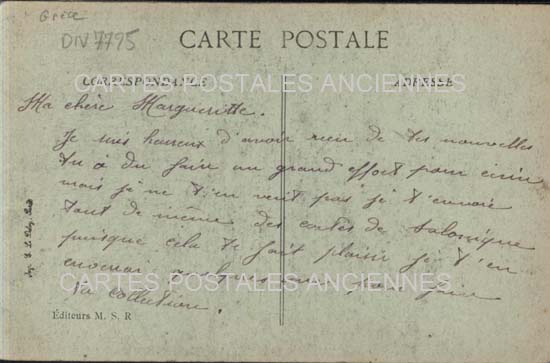 Grèce
DIV 7795
CARTE POSTALE
CORRESPONDANCE
ADRESSE
CARTES POSTALES ANCIENNES
Ma chère Margueritte.
Je suis heureux d'avoir reçu de tes nouvelles
tu a du faire un grand effort pour écrire
mais je ne t'en veut pas je t'envoie
tout de même des cartes de Salonique
puisque cela te fait plaisir je t'en
enverrai quelques unes pour faire
ta collection.
CARTES POSTALES ANCIENNES
Éditeurs M. S. R